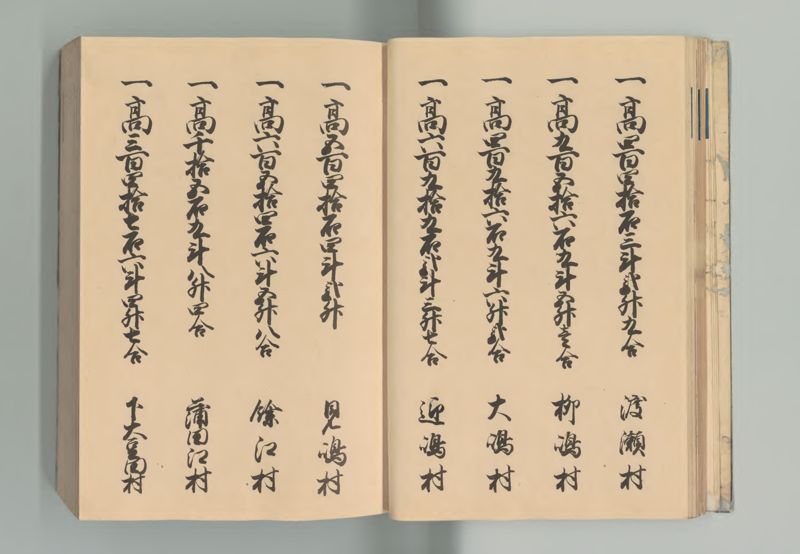 一高四百四拾石三斗弐升九合 渡瀬村
一高九百五拾六石九斗五升壱合 柳嶋村
一高四百九拾六石九斗六升弐合 大嶋村
一高六百九拾九石弐斗三升七合 近嶋村
一高五百四拾石四斗弐升 見嶋村
一高六百五拾四石六斗五升八合 餘江村
一高千拾五石九斗八升四合 蒲田江村
一高三百四拾七石六斗四升七合 下大豆田村